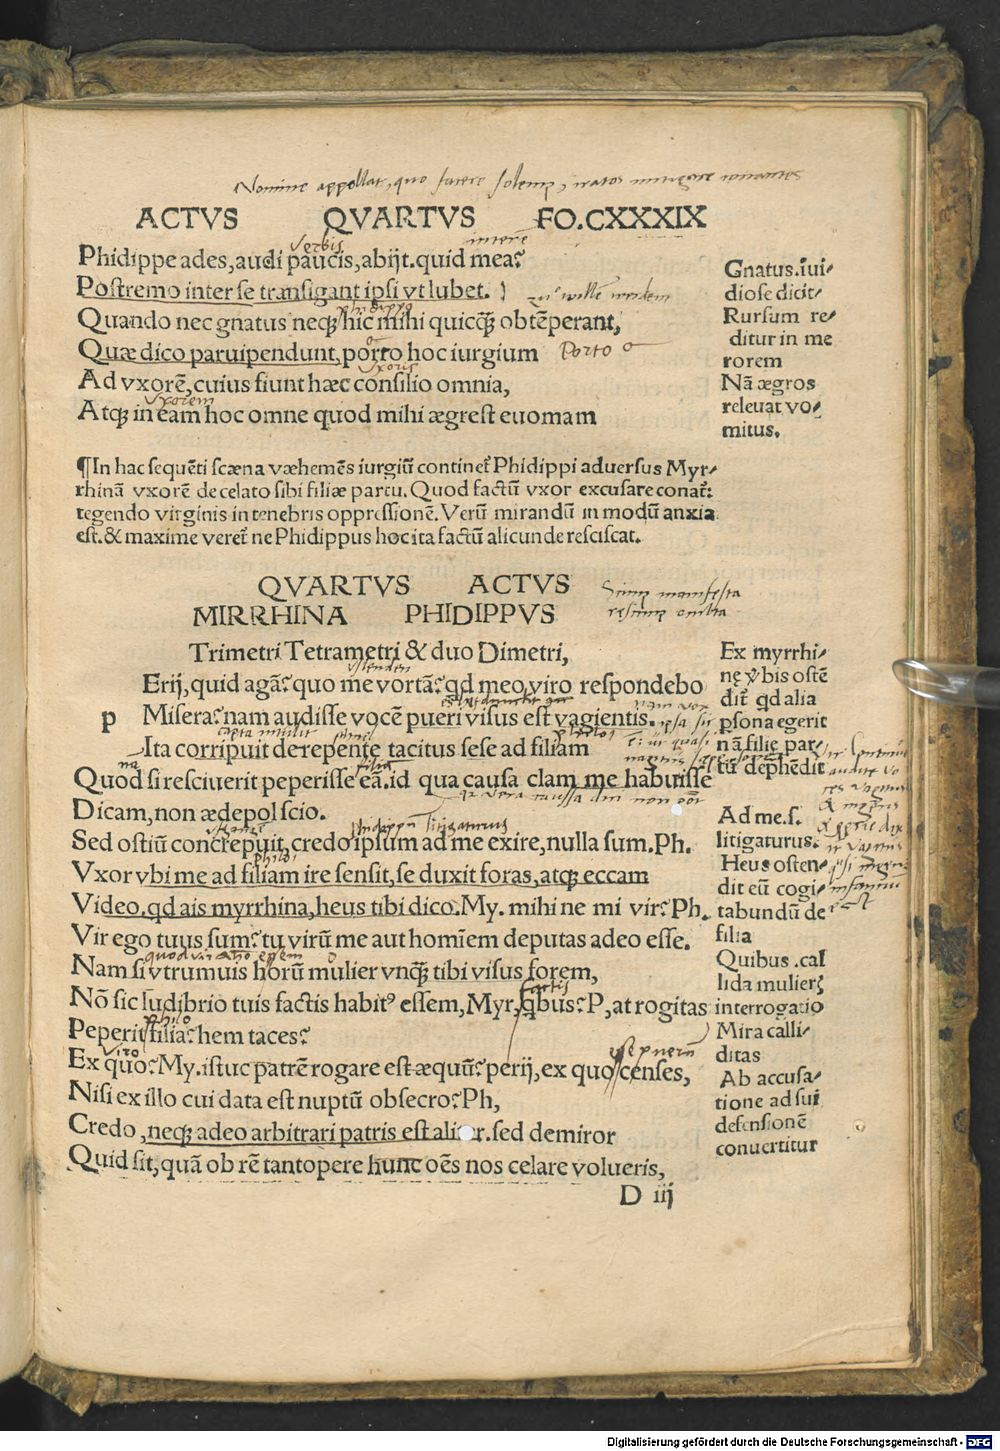 Nomine appellat, quo facere solemus, iratos mitigare conantes
ACTVS QVARTVS FO.CXXXIX
verbis
Phidippe ades,audi paucis,abijt.quid mea?
Postremo inter se transigant ipsi vt lubet.
phidippo
Quando nec gnatus neqꝫ hic mihi quicqꝫ̃ obtẽperant,
Quæ dico paruipendunt,porro hoc iurgium Porto
vxoris
Ad vxorẽ,cuius fiunt hæc consilio omnia,
vxorem
Atqꝫ in eam hoc omne quod mihi ægrest euomam
Gnatus.ĩui⸗
diose dicit⸗
Rursum re⸗
ditur in me
rorem
Nã ægros
releuat vo⸗
mitus.
¶In hac sequẽti scæna væhemẽs iurgiũ continet̃ Phidippi aduersus Myr⸗
rhinã vxorẽ de celato sibi filiæ partu. Quod factũ vxor excusare conat̃:
tegendo virginis in tenebris oppressionẽ. Verũ mirandũ in modũ anxia
est. & maxime veret̃ ne Phidippus hoc ita factũ alicunde resciscat.
QVARTVS ACTVS
MIRRHINA PHIDIPPVS
Trimetri Tetrametri & duo Dimetri,
Erij,quid agã?quo me vortã?qd meo viro respondebo
p Misera?nam audisse vocẽ pueri visus est vagientis.
Ita corripuit derepente tacitus sese ad filiam
filia
Quod si resciuerit peperisse eã.id qua causa clam me habuisse
Dicam,non ædepol scio.
Sed ostiũ concrepuit,credo ipsum ad me exire,nulla sum.Ph.
Vxor vbi me ad filiam ire sensit,se duxit foras,atqꝫ eccam
Video.qd ais myrrhina,heus tibi dico.My. mihi ne mi vir?Ph.
Vir ego tuus sum?tu virũ me aut homĩem deputas adeo esse.
Nam si vtrumuis horũ mulier vnqꝫ̃ tibi visus forem,
factis
Nõ sic ludibrio tuis factis habitꝰ essem,Myr,qbus?P,at rogitas
Peperit filia?hem taces?
viro
Ex quo?My.istuc patrẽ rogare est æquũ?perij,ex quo censes,
Nisi ex illo cui data est nuptũ obsecro?Ph,
Credo ,neqꝫ adeo arbitrari patris est alit r.sed demiror
Quid sit,quã ob rẽ tantopere hunc oẽs nos celare volueris,
Ex myrrhi⸗
nę ṽbis ostẽ
dit̃ qd alia
psona egerit
nã filie par⸗
tũ dephẽdit
Ad me.s.
litigaturus.
Heus osten⸗
dit eũ cogi⸗
tabundũ de
filia
Quibus .cal
lida mulieꝝ
interrogatio
Mira calli⸗
ditas
Ab accusa⸗
tione ad sui
defensionẽ
conuertitur
D iij
Digitalisierung gefördert durch die Deutsche Forschungsgemeinschaft - DFG